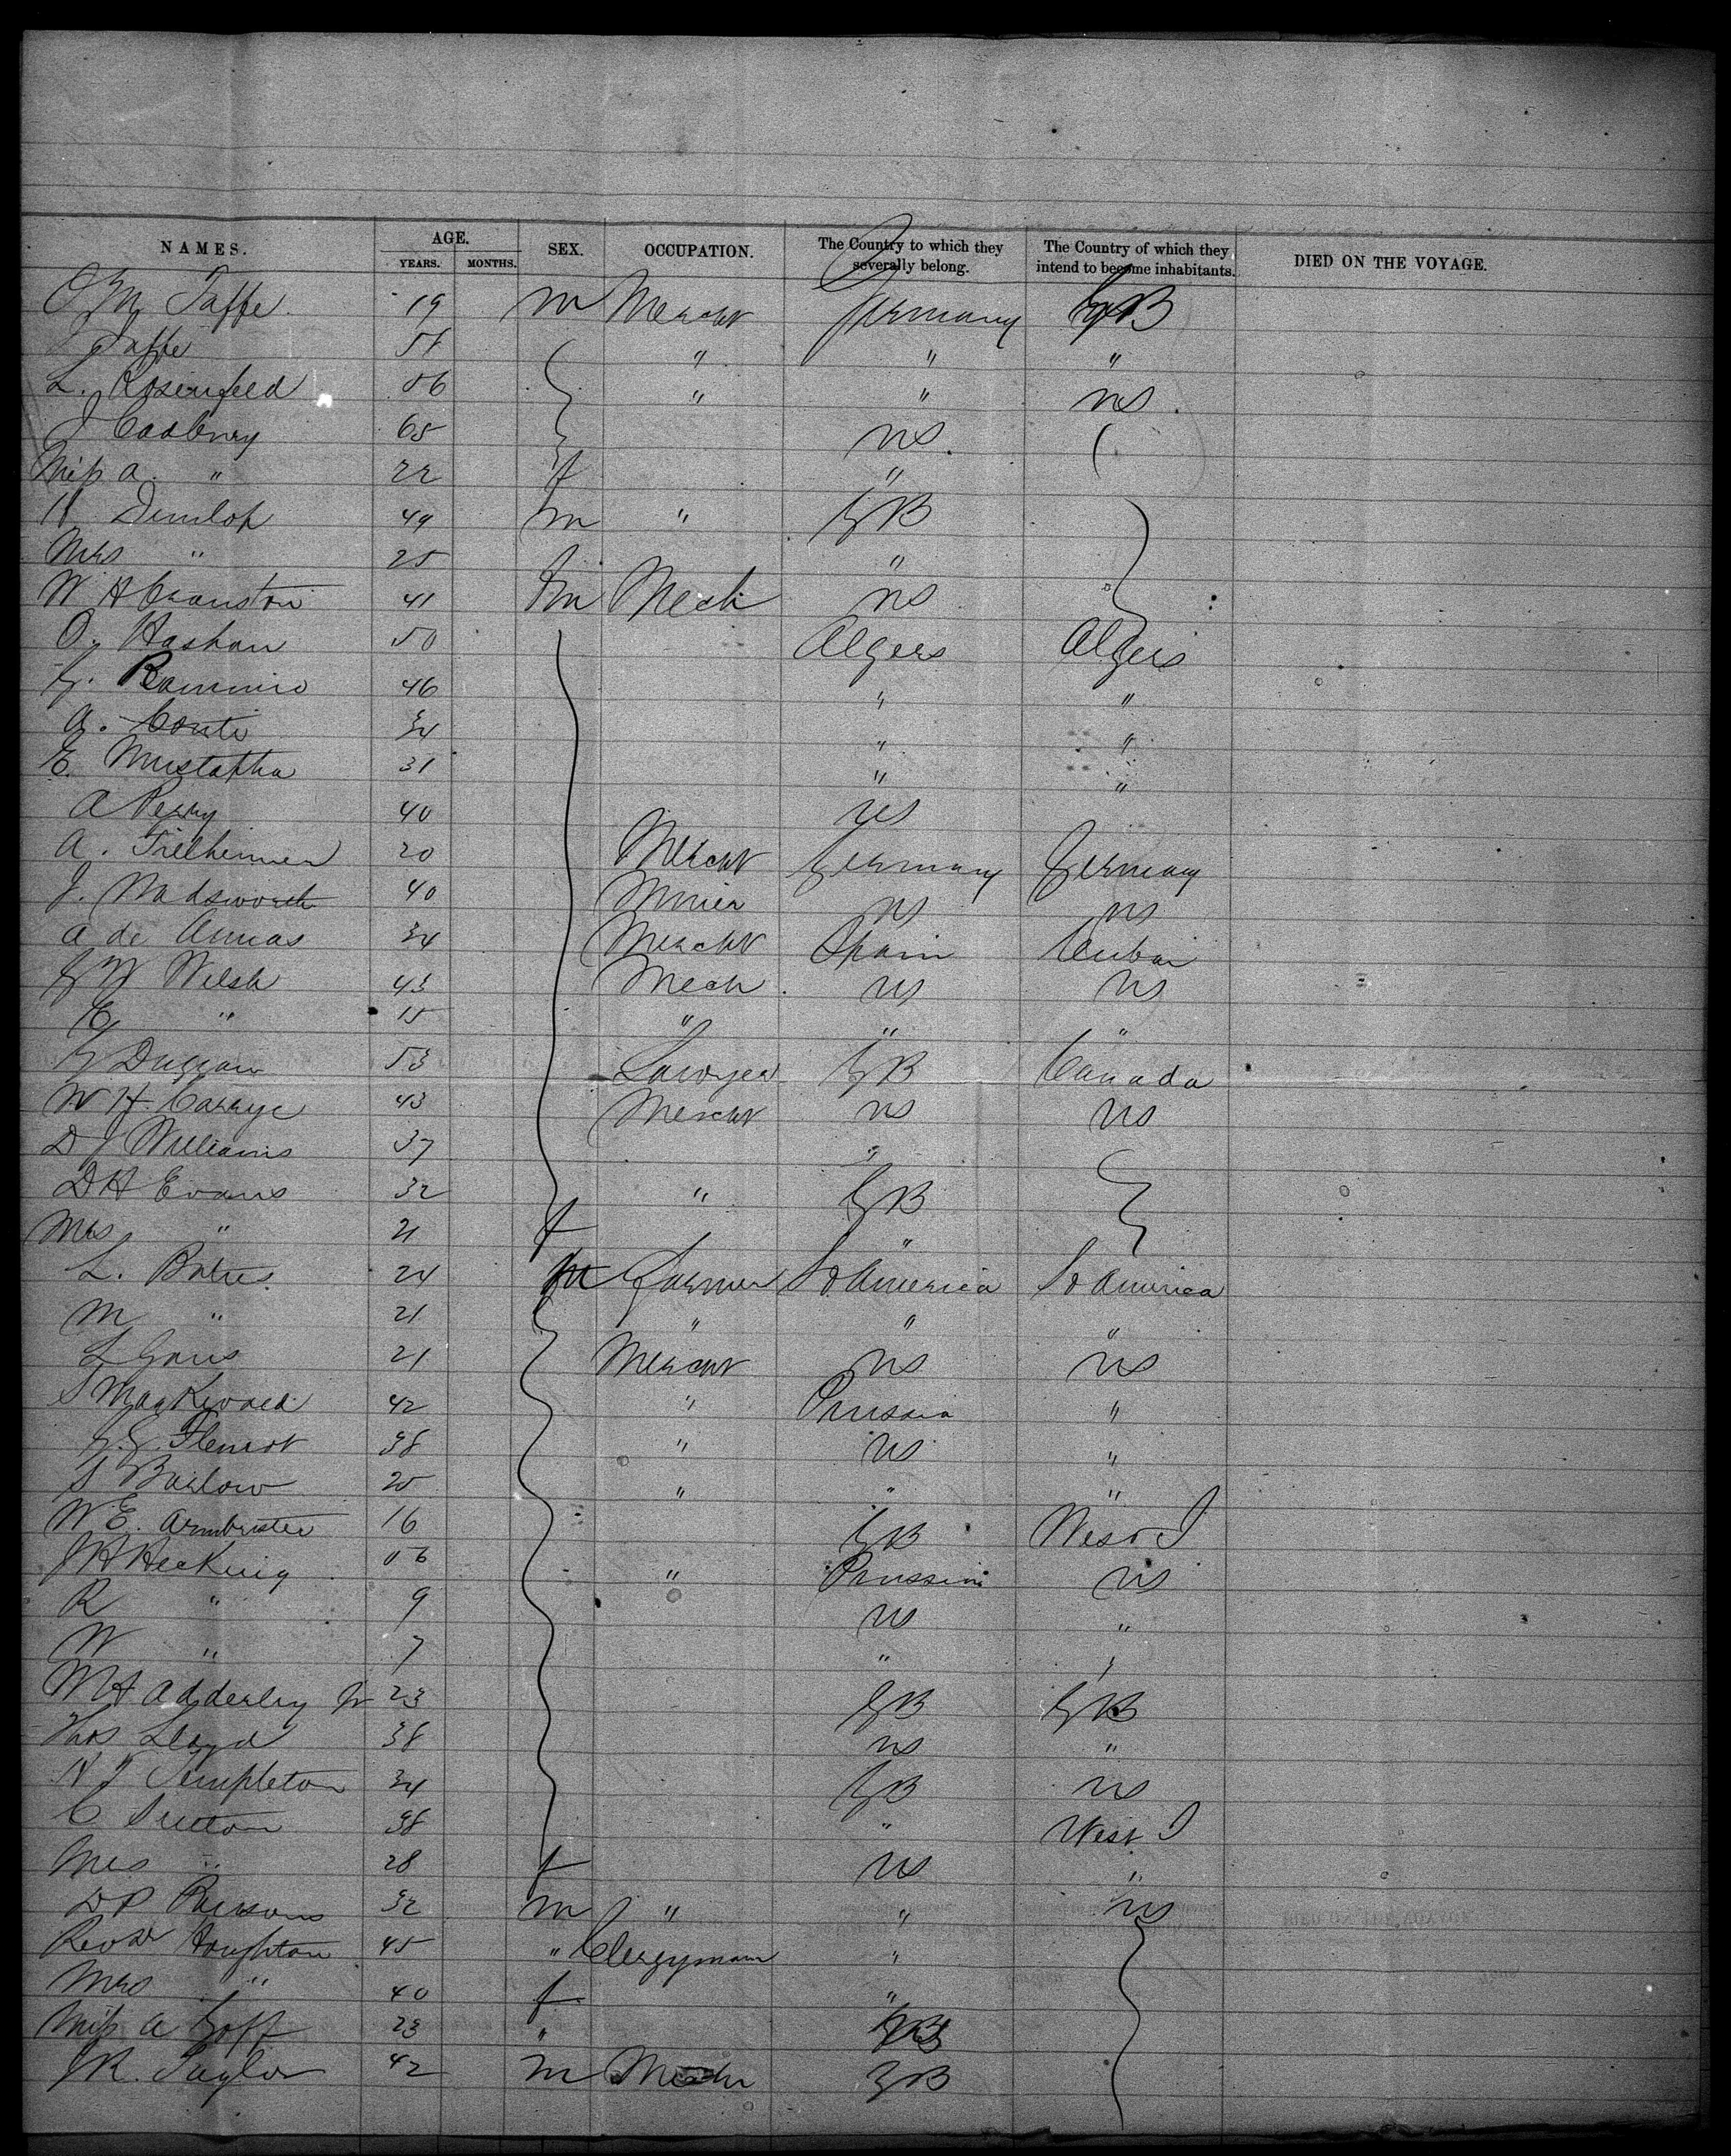 NAMES. AGE. YEARS. MONTHS. SEX. OCCUPATION. The Country to which they severally belong. The Country of which they intend to become inhabitants. DIED ON THE VOYAGE.
Jaffe 19 m Mercht Germany GB
Jaffe " " "
L. Rosenfeld 56 " " US.
J Cadbury 65 US.
Miss A. " 22 f "
Dunlop 49 m " GB
Mrs " 25 f "
W H Cranston 41 m Mech US
O. Hashan 50 Algers Algers
G. 46 " "
A. Conti 34 " "
E. Mustapha 31 " "
A Perry 40 US
A. 20 Mercht Germany Germany
J. Wadsworth 40 Miner US US
A de Armas 34 Mercht Spain Cuba
G W Welsh 43 Mech US US
E " 15 " " "
G Duggan 53 Lawyer GB Canada
W H. 43 Mercht US US
D J Williams 37 "
D H Evans 32 " GB
Mrs " 21 f "
L. 24 m Farmer So America So America
M " 21 " " "
L 21 Mercht US US
S 42 " Prussia "
38 " US "
S Barlow 25 " " "
W E. Armbrister 16 GB West I
J H Hecking 56 " Prussia US
R " 9 US "
W " 7 " "
W H Adderley Jr 23 GB GB
Thos Lloyd 38 US "
Templeton 34 GB US
C Sutton 38 " West I
Mrs " 28 f US "
D P Parsons 32 m " " US
Revd Houghton 45 " Clergyman "
Mrs " 40 f "
Miss A Goff 23 " GB
J R. Taylor 42 m Mech GB